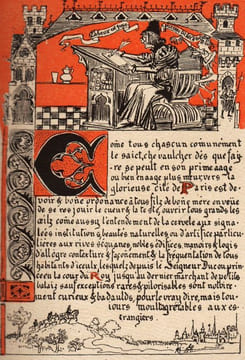 Come tous chascun comunément
le saict, che vaulcher dès que faj
re se peult en son prime aage
ou bien en aage plus meur, vers la
glorieuse cité de Paris est de
voir & bone ordonance à tous filz de bone mère en vüe
de se resjouir le cueur & la teste, ouvrir tous grands les
œilz come aussi l'entendement de la cervele aux signa
lées institutions & beautés naturelles ou d'artifice particu
lières aux rives séquanes, nobles édifices, manoirs & logis
d'allègre contexture & façonement & la fréquentation de tous
habitants d'iceulx lesquelz, depuis le Seigneur Duc ou prin
ce en la cour du Roy jusqu'au dernier marchant de petitz
balaiz sauf exceptions rares & pilorisables sont notoire
ment curieux & badaulds, pour le vray dire, mais tou
jours moult agréables aux es
trangiers